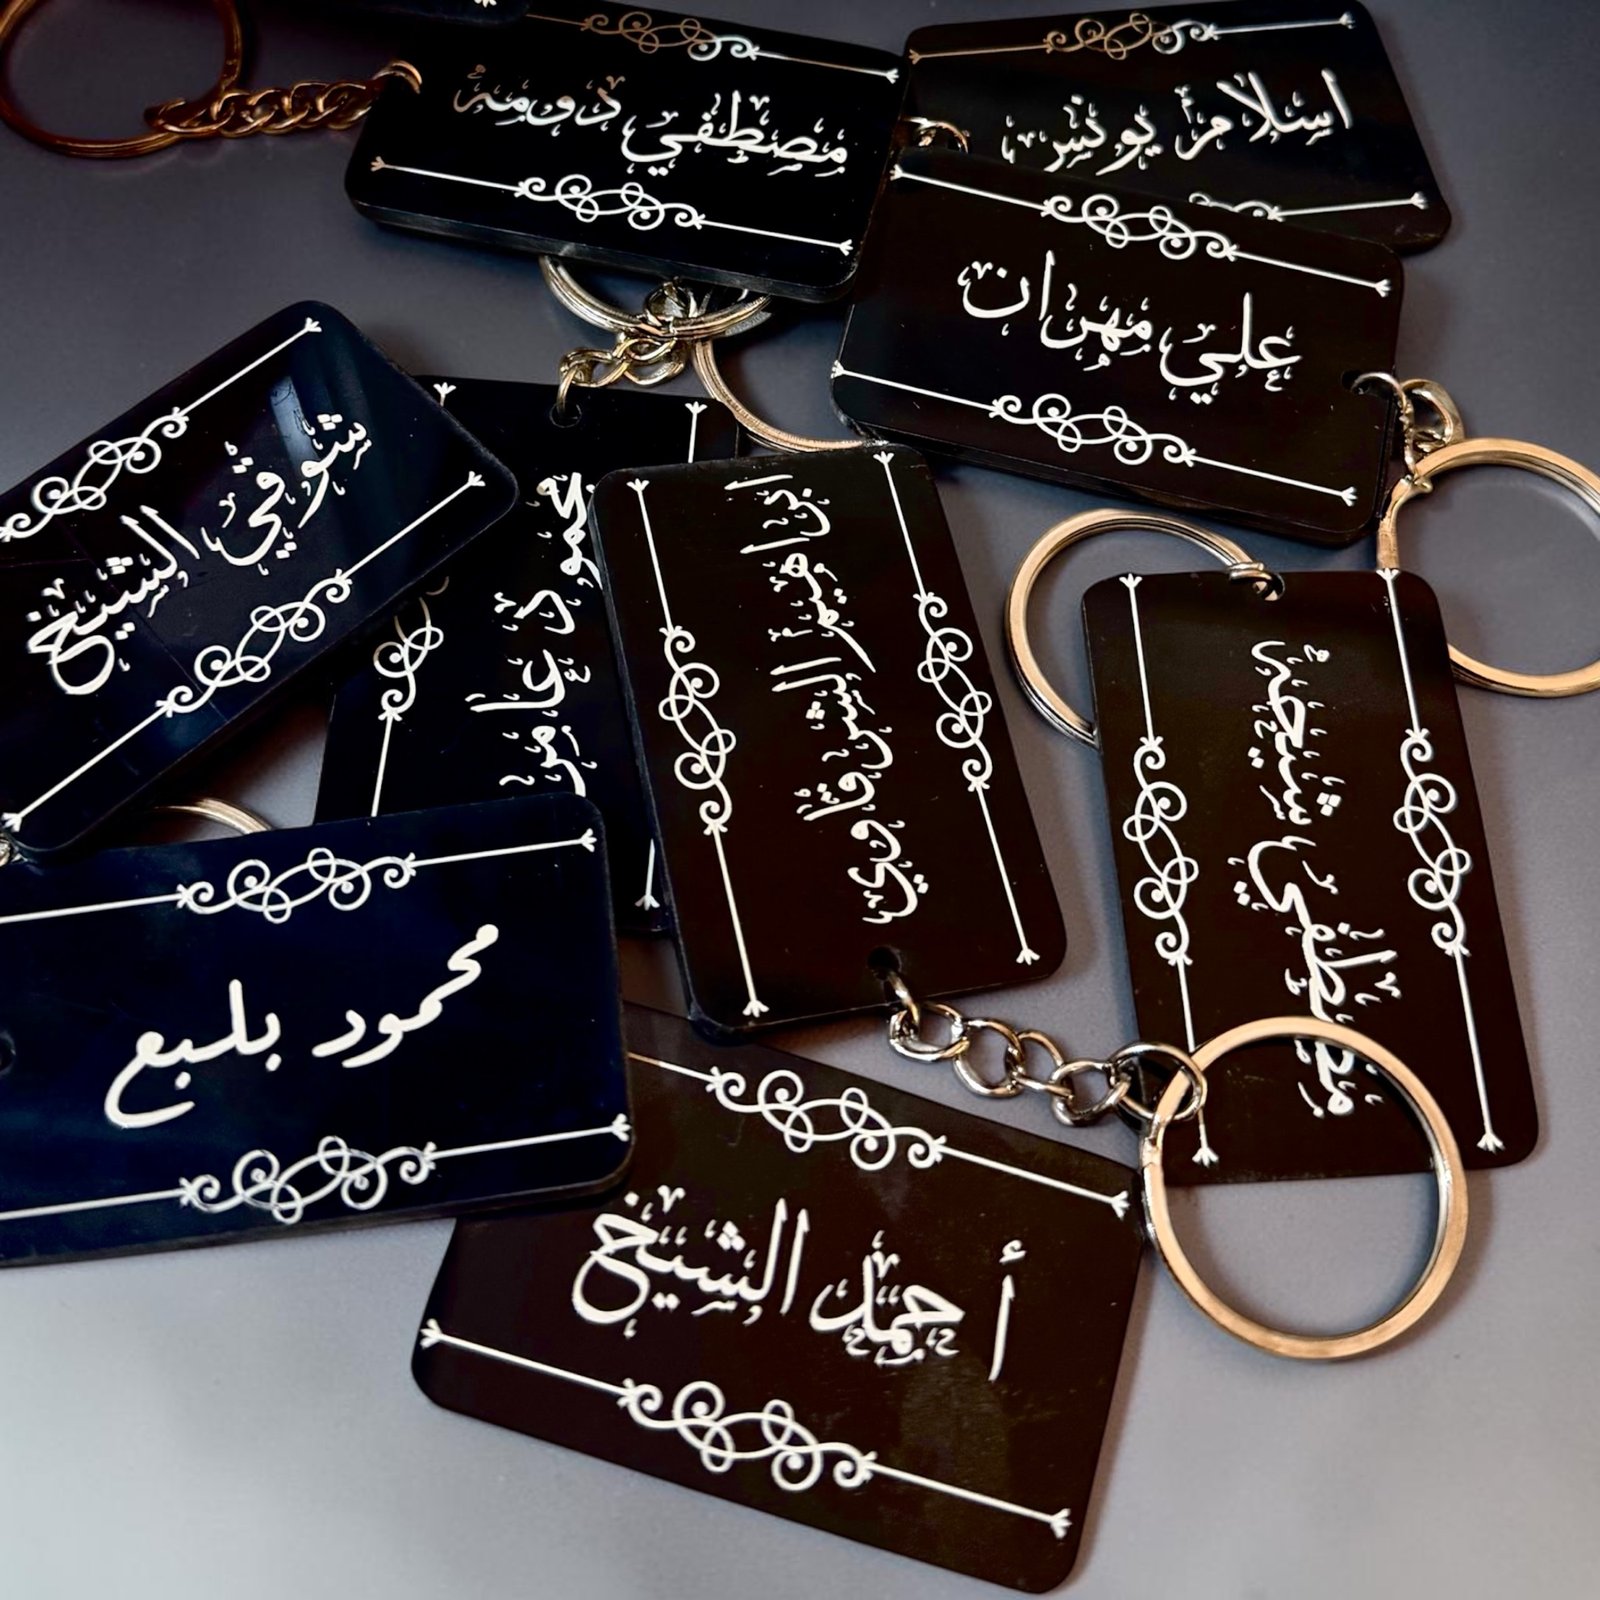 مصطفي دومه
اسلام يونس
علي مهران
شوقي الشيخ
محمود عامر
ابراهيم الشرقاوي
مصطفي شيحه
محمود بلبع
أحمد الشيخ